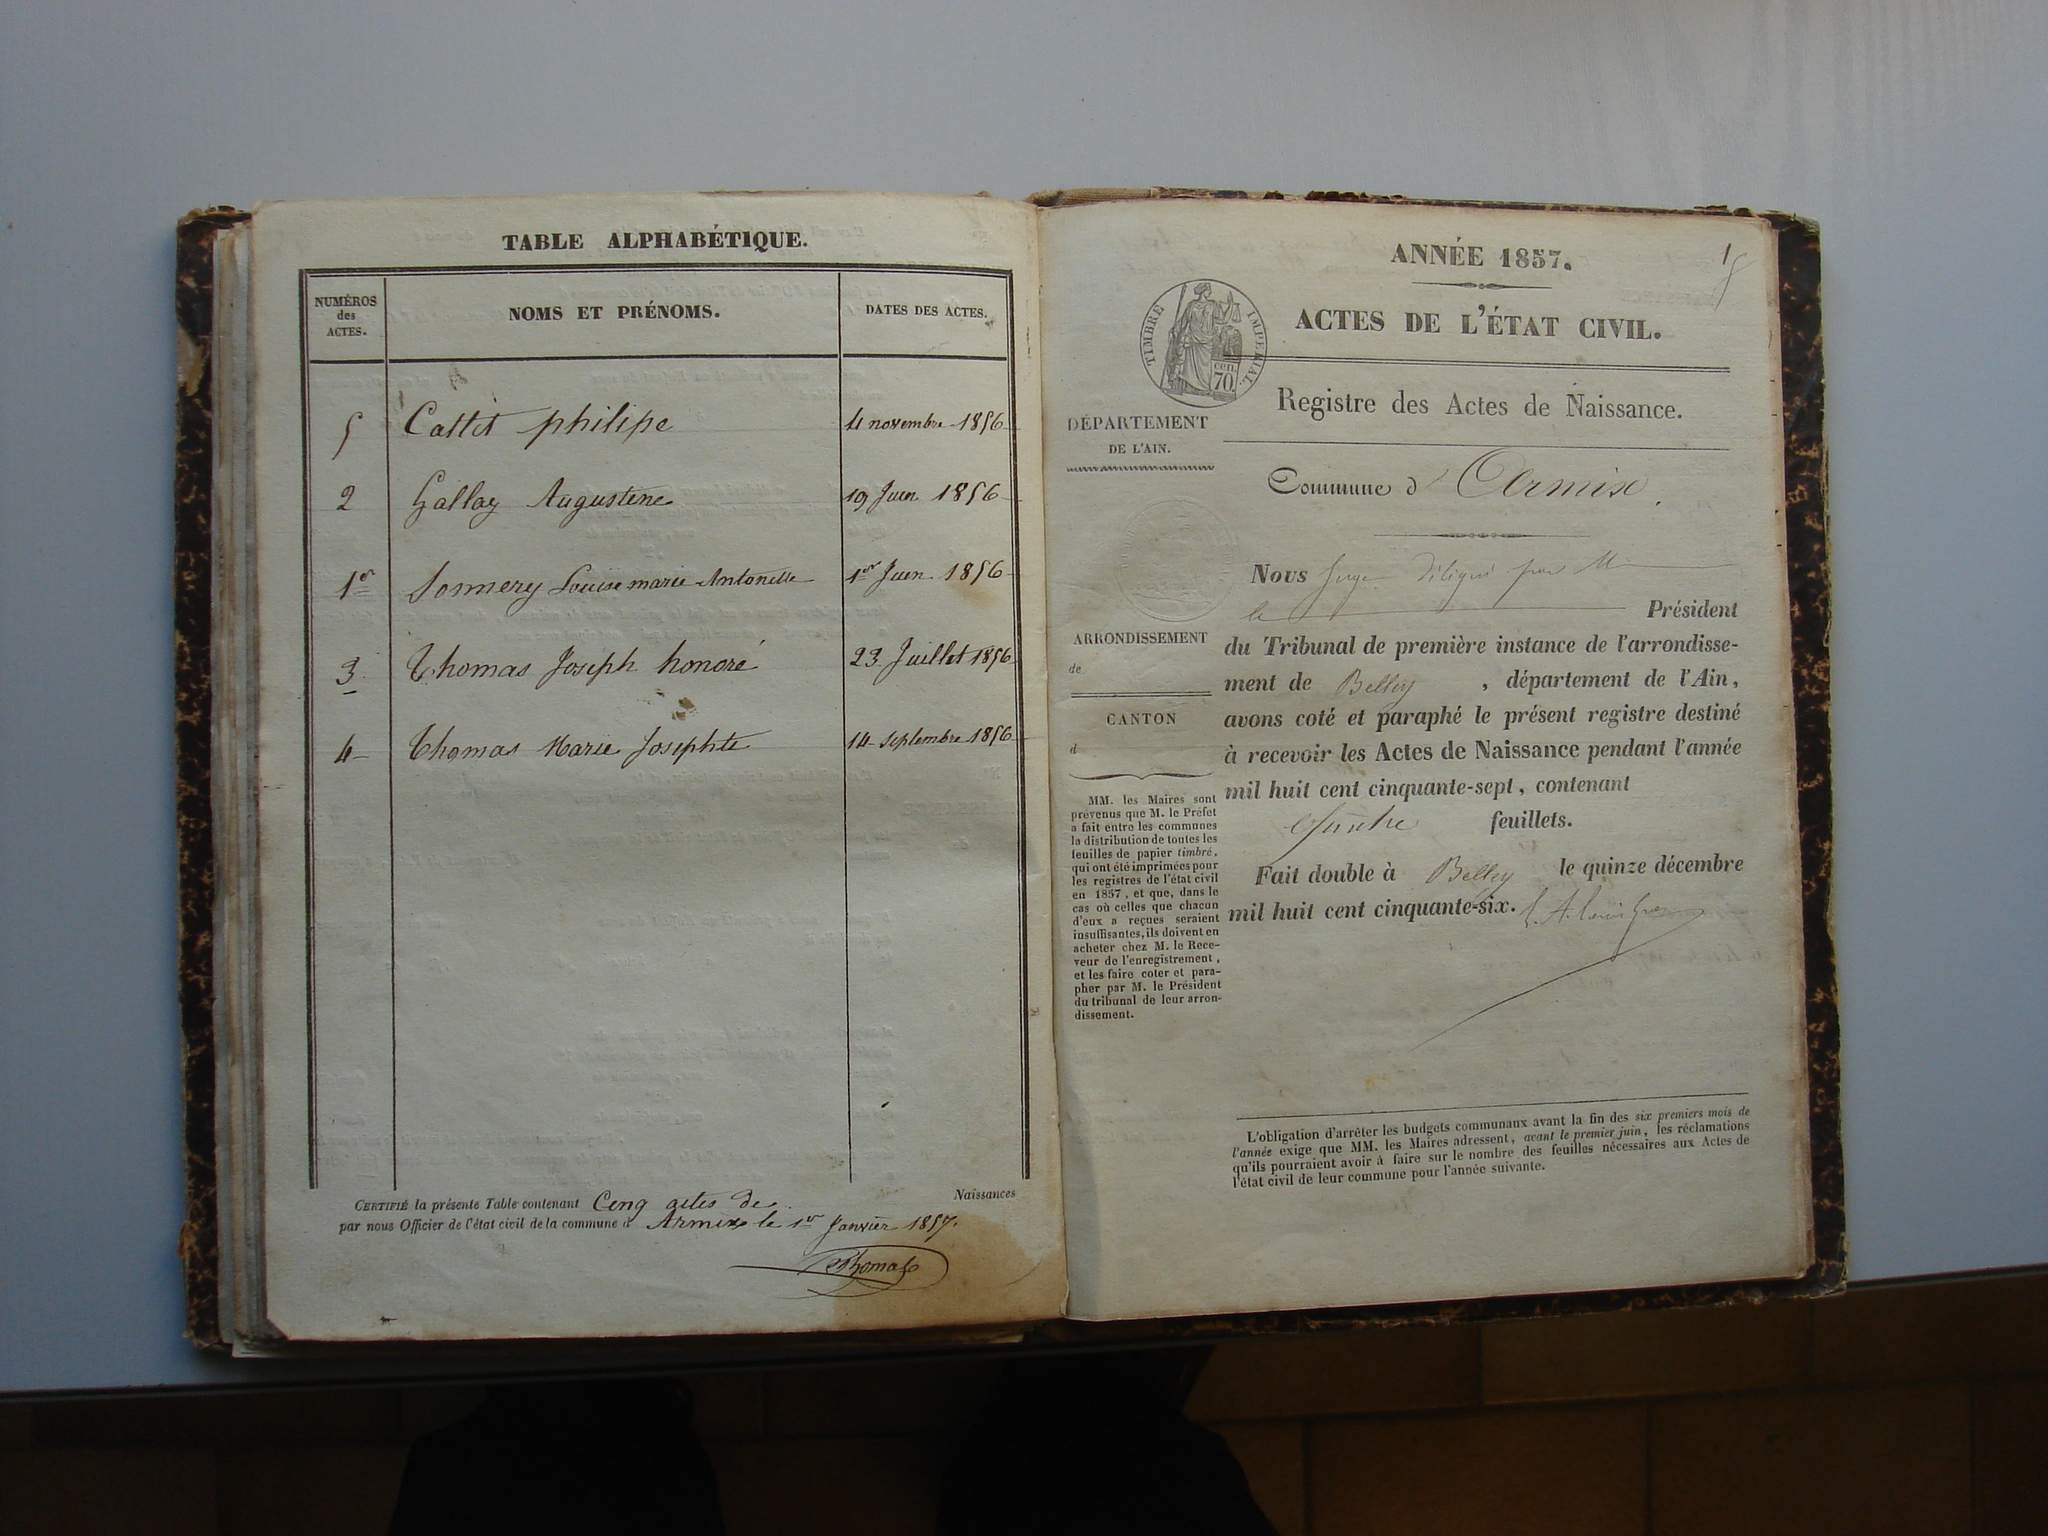 TABLE ALPHABÉTIQUE.
NUMÉROS des ACTES.
NOMS ET PRÉNOMS.
DATES DES ACTES.
5 Cattet philipe 4 novembre 1856
2 Gallay Augustine 19 Juin 1856
1er Sonnery Louise marie Antonette 1er Juin 1856
3 Thomas Joseph honoré 23 Juillet 1856
4 Thomas Marie Josephte 14 Septembre 1856
CERTIFIÉ la présente Table contenant Cenq actes de Naissances
par nous Officier de l'état civil de la commune d Armix le 1er Janvier 1857.
Thomas
1
ANNÉE 1857.
ACTES DE L'ÉTAT CIVIL.
TIMBRE IMPERIAL.
cen.
70.
Registre des Actes de Naissance.
DÉPARTEMENT
DE L'AIN.
Commune d' Armix.
ARRONDISSEMENT
de
CANTON
d
MM. les Maires sont
prévenus que M. le Préfet
a fait entre les communes
la distribution de toutes les
feuilles de papier timbré,
qui ont été imprimées pour
les registres de l'état civil
en 1857, et que, dans le
cas où celles que chacun
d'eux a reçues seraient
insuffisantes, ils doivent en
acheter chez M. le Rece-
veur de l'enregistrement,
et les faire coter et para-
pher par M. le Président
du tribunal de leur arron-
dissement.
Nous Juge par M
le Président
du Tribunal de première instance de l'arrondisse-
ment de Belley , département de l'Ain,
avons coté et paraphé le présent registre destiné
à recevoir les Actes de Naissance pendant l'année
mil huit cent cinquante-sept, contenant
feuillets.
Fait double à Belley le quinze décembre
mil huit cent cinquante-six.
L'obligation d'arrêter les budgets communaux avant la fin des six premiers mois de
l'année exige que MM. les Maires adressent, avant le premier juin, les réclamations
qu'ils pourraient avoir à faire sur le nombre des feuilles nécessaires aux Actes de
l'état civil de leur commune pour l'année suivante.